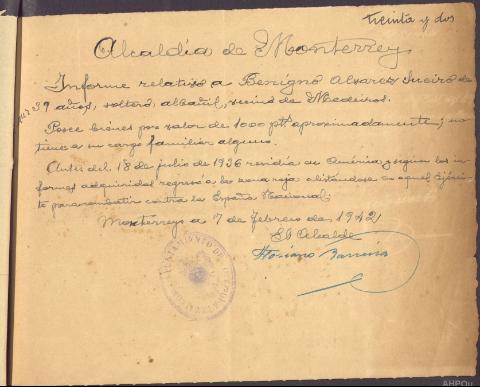 treinta y dos
Alcaldía de Monterrey
Informe relativo a Benigno Alvarez Sueiro de
39 años, soltero, albañil, vecino de Medeiros.
Posee bienes por valor de 1000 ptas aproximadamente, y no
tiene a su cargo familiar alguno.
Antes del 18 de julio de 1936 residía en América, y segun los in-
formes adquiridos regresó a la zona roja alistándose en aquel Ejérci-
to para combatir contra la España Nacional.
Monterrey a 7 de febrero de 1942
El Alcalde
Barreira
AYUNTAMIENTO DE
AHPOu